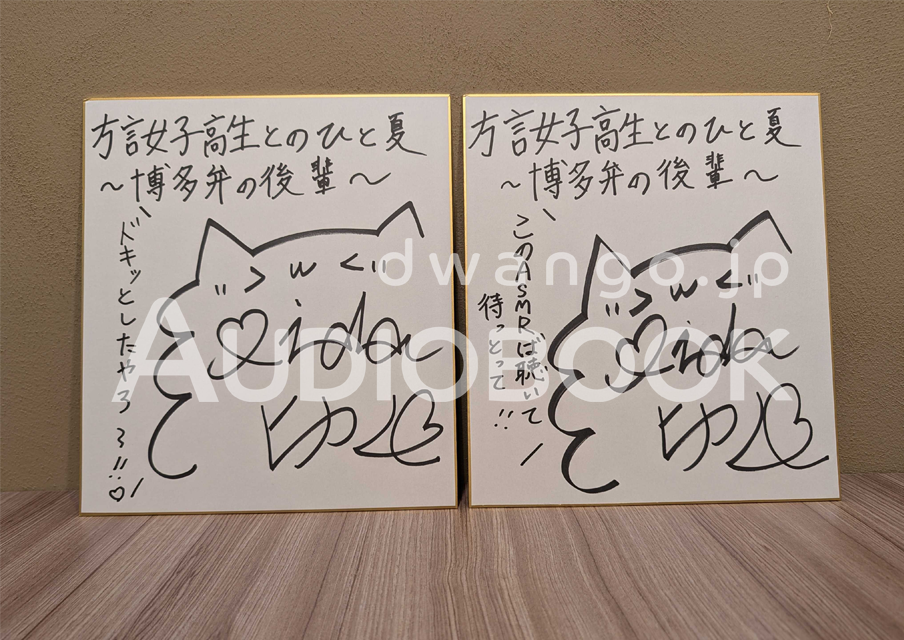 方言女子高生とのひと夏
～博多弁の後輩～
\ドキッとしたやろ??!!♡/
方言女子高生とのひと夏
～博多弁の後輩～
\このASMRば聴いて
待っとって!!/
dwango.jp
AUDIOBOOK